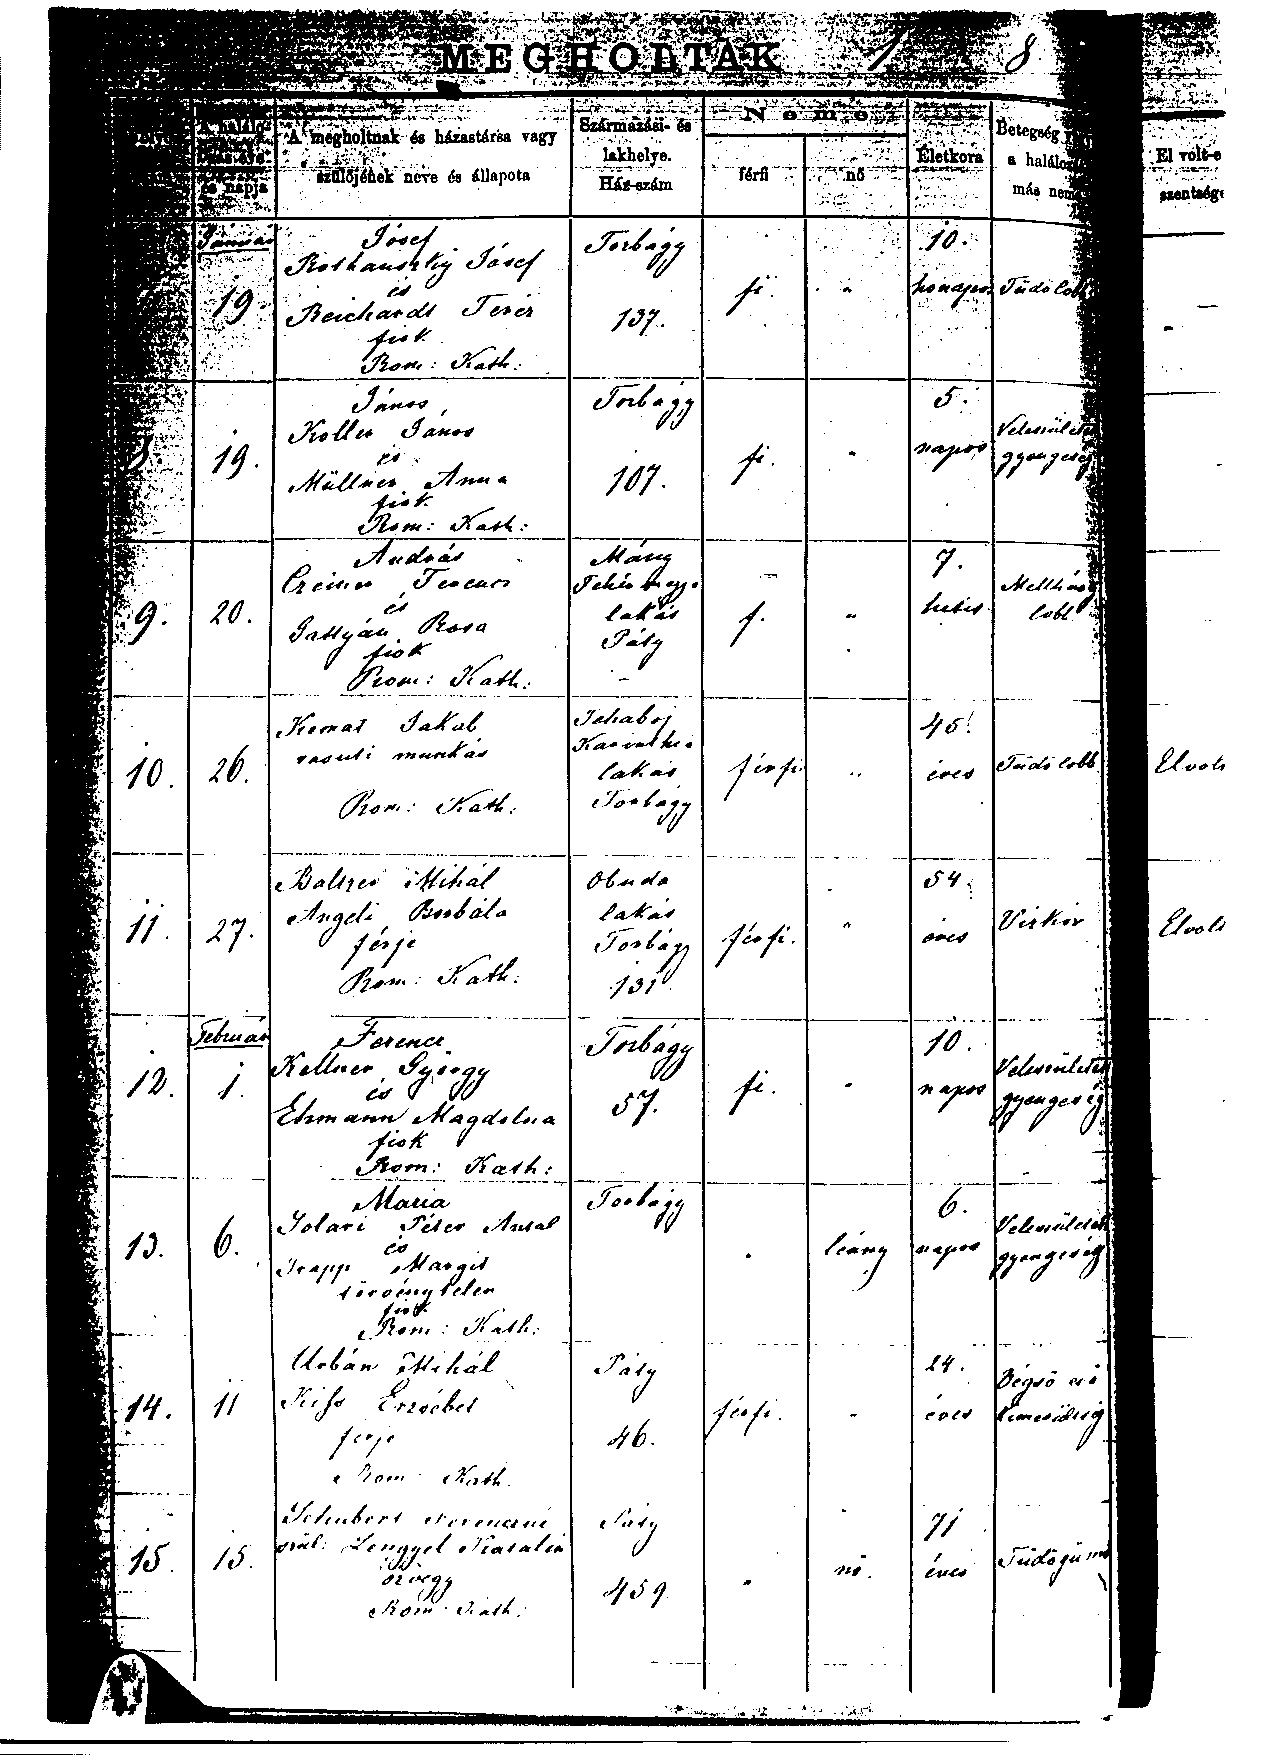 MEGHOLTAK 1 8
A megholtnak és házastársa vagy
szülőjének neve és állapota
Származási- és
lakhelye.
Ház-szám
Neme
férfi
nő
Életkora
Betegség
a halálo
más nem
El volt-e
szentsége
és napja
Január
19.
József
Rothauszky József
és
Reichardt Teréz
fiok
Rom: Kath:
Torbágy
137.
fi.
"
10.
hónapos
Tüdőlobb
8.
19.
János
Koller János
és
Müllner Anna
fiok
Rom: Kath:
Torbágy
107.
fi.
"
5.
napos
Veleszületet
gyengeség
9.
20.
András
Ferencz
és
Rosa
fiok
Rom: Kath:
Mány
Fehérmegye
lakás
Páty
f.
"
7.
hetes
Mellhárty
lobb
10.
26.
Jakab
vasuti munkás
Rom: Kath:
lakás
Torbágy
férfi
"
45.
éves
Tüdőlobb
Elvolt
11.
27.
Baltzer Mihál
Angeli Borbála
férje
Rom: Kath:
Obuda
lakás
Torbágy
131
férfi.
"
54.
éves
Vízkór
Elvolt
Február
12.
1.
Ferencz
Kellner György
és
Ehmann Magdolna
fiok
Rom: Kath:
Torbágy
57.
fi.
"
10.
napos
Veleszületet
gyengeség
13.
6.
Mária
Péter Antal
és
Trapp Margit
törvénytelen
fiok
Rom: Kath:
Torbágy
"
leány
6.
napos
Veleszületet
gyengeség
14.
11
Urbán Mihál
Kiss Erzsébet
férje
Rom Kath.
Páty
46.
férfi.
"
24.
éves
Végső erő
kimerültség
15.
15.
Schubert Ferenczné
szül: Lengyel Katalin
özvegy
Rom Kath:
Páty
459
"
nő.
71
éves
Tüdőgümő